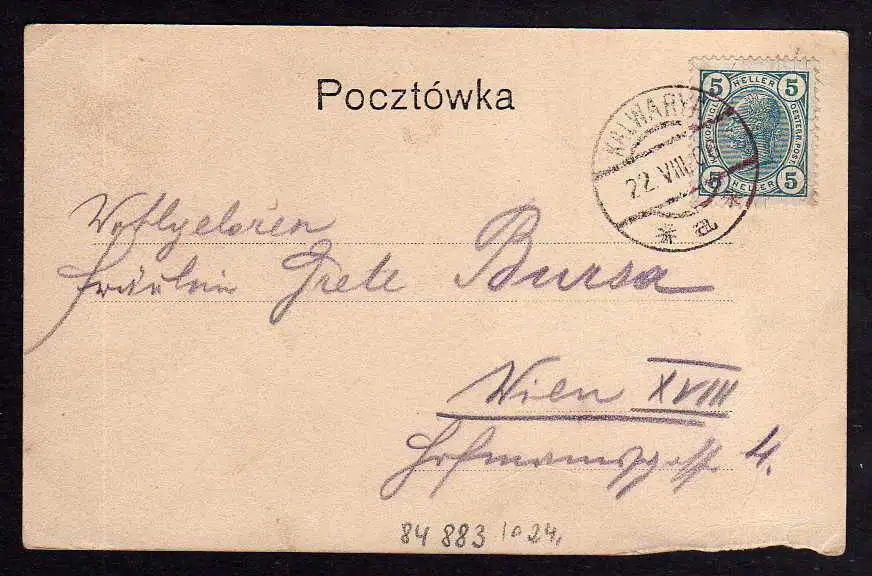 Pocztówka
5 HELLER 5
OESTERR. POST
5 HELLER 5
KALWARYA
22 VIII
* a *
Wohlgeboren
Fräulein Grete Bursa
Wien XVIII
4.
84 883 10 24.